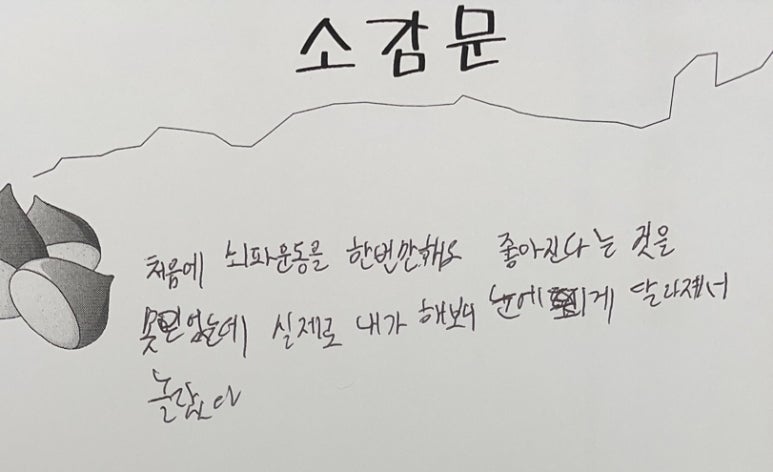 소감문
처음에 뇌파운동을 한번만해도 좋아진다는 것을
못믿었는데 실제로 내가 해보니 눈에 띄게 달라져서
놀랍다